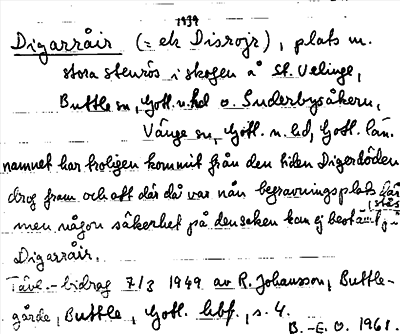 1939
Digarråir (= ek Disrojr), plats m.
stora stenrös i skogen å St. Velinge,
Buttle sn, Gotl. n. hd o. Suderbysåkern,
Vänge sn, Gotl. n. hd, Gotl. län.
namnet har troligen kommit från den tiden Digerdöden
drog fram och att där då var nån begravningsplats
men någon säkerhet på den saken kan ej
Digarråir.
Tävl.-bidrag 7/3 1949 av R. Johansson, Buttle-
gårde, Buttle, Gotl. hbf., s. 4.
B.-E. O. 1961.